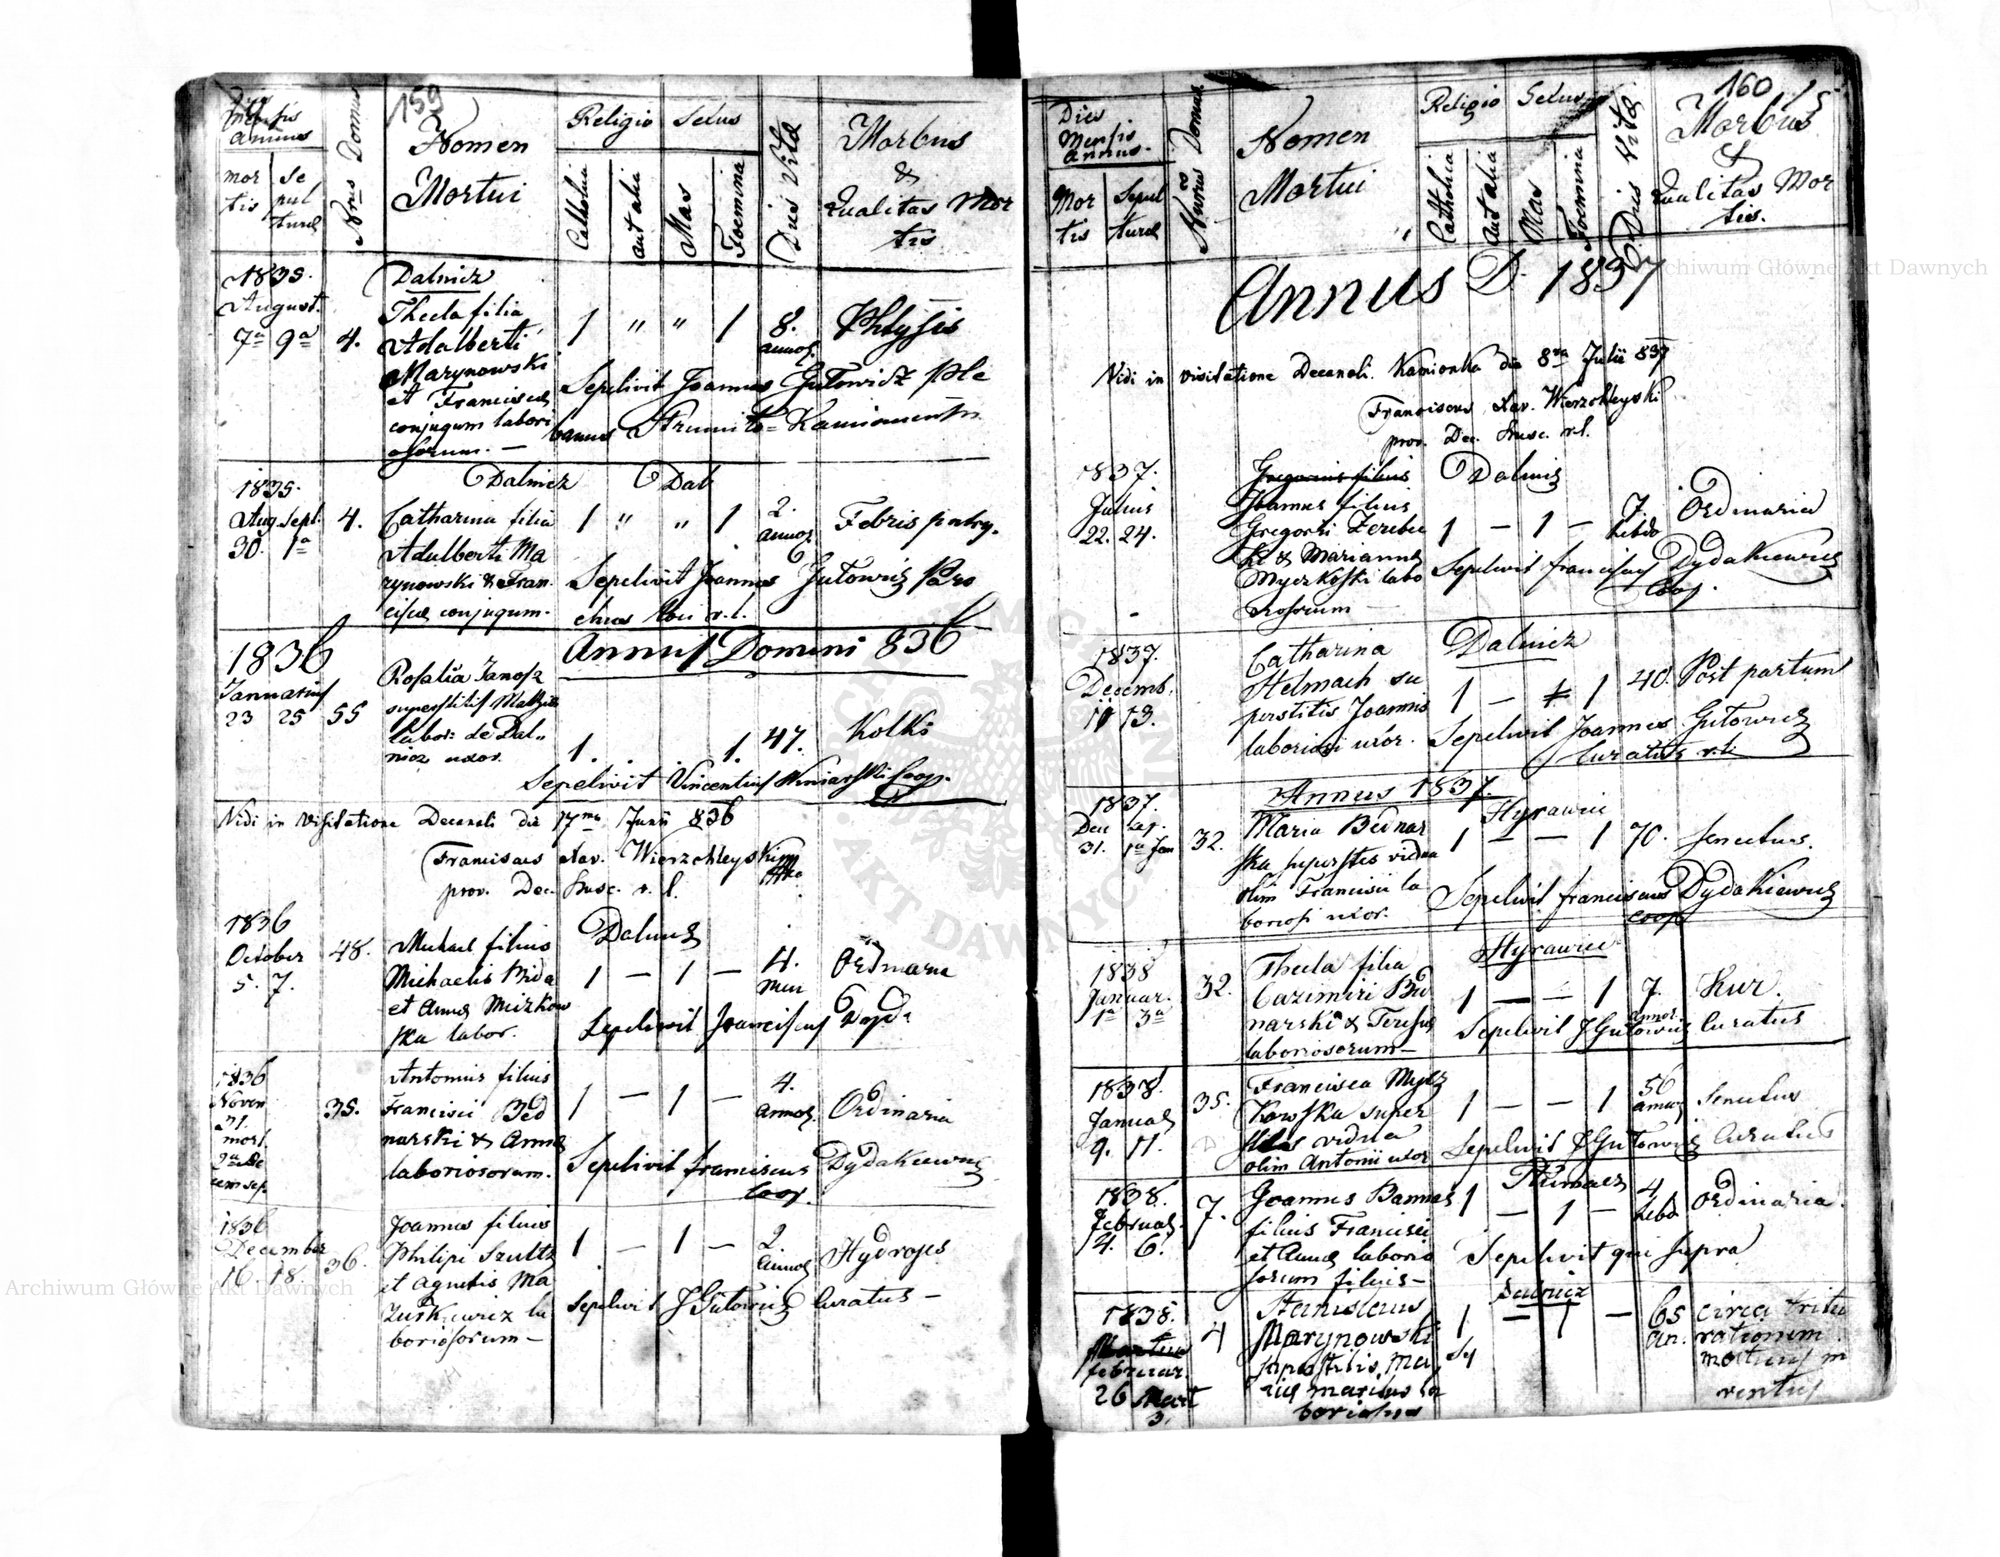 159
Dies Mensis Annus
Nrus Domus
Nomen Mortui
Religio
Sexus
Dies Vitæ
Morbus & Qualitas Mortis
mortis
Sepulturæ
Catholica
aut alia
Mas
Foemina
1835.
August.
7ª 9ª
4.
Dalnicz
Thecla filia
Adalberti
Marynowski
et Franciscæ
conjugum labori
osorum. —
1 " " 1
8.
annor.
Phtysis
Sepelivit Joannes Gutowicz Ple
banus Strumilo=Kamionensis
1835.
Aug. Sept.
30. 1ª
4.
Dalnicz
Catharina filia
Adalberti Ma
rynowski & Fran
ciscæ conjugum.
1 " " 1
2.
annor.
Febris putry.
Sepelivit Joannes Gutowicz Paro
chus loci r.l.
Annus Domini 836
1836
Januarius
23 25
55
Rosalia Janosz
superstitis Mathiæ
labor: de Dal=
nicz uxor.
1. . . 1.
47.
Kolki
Sepelivit Vincentius Winiarski Coop.
Vidi in Visitatione Decanali die 17ma Junii 836
Franciscus Xav. Wierzchleyski
prov. Dec. Busc. r. l.
1836
October
5. 7.
48.
Dalnicz
Michael filius
Michaelis Bida
et Annæ Mizkow
ska labor.
1 — 1 —
4.
Men
Ordinaria
Sepelivit Franciscus Dyd.
1836
Novem
31.
mort.
35.
Antonius filius
Francisci Bed
narski & Annæ
laboriosorum.
1 — 1 —
4.
annor.
Ordinaria
Sepelivit Franciscus Dydakiewicz
Coop.
1836
December
16. 18.
36.
Joannes filius
Philipi Szultz
et Agnetis Ma
zurkiewicz la
boriosorum —
1 — 1 —
2
annor
Hydrops
Sepelivit J Gutowicz Curatus —
160
Dies Mensis Annus.
Numerus Domus
Nomen Mortui
Religio
Sexus
Dies Vitæ
Morbus & Qualitas Mortis.
Mortis
Sepulturæ
Catholica
Aut alia
Mas
Foemina
Annus D. 1837
Vidi in visitatione Decanali. Kamionka die 8va Julii 837
Franciscus Xav. Wierzchleyski
prov. Dec. Busc. r.l.
1837.
Julius
22. 24.
Gregorius filius
Dalnicz
Joannes filius
Gregorii Zerebec
ki & Mariannæ
Myczkoski labo
riosorum —
1 — 1 —
7.
hebdo
Ordinaria
Sepelivit Franciscus Dydakiewicz
Coop.
1837.
Decemb.
11 13.
Dalnicz
Catharina
Helmach su
perstitis Joannis
laboriosi uxor.
1 — 1
40.
Post partum
Sepelivit Joannes Gutowicz
Curatus r.l.
Annus 1837.
1837.
Dec
31. 1ª Jan
32.
Hyrawiec
Maria Bednar
ska superstes vidua
olim Francisci la
boriosi uxor.
1 — — 1
70.
Senectus.
Sepelivit Franciscus Dydakiewicz
Coop
1838
Januar.
1ª 3ª
32.
Hyrawiec
Thecla filia
Cazimiri Bed
narski & Teresæ
laboriosorum —
1 — — 1
7.
annor.
Kur.
Sepelivit J Gutowicz Curatus
1838.
Januar
9. 11.
35.
Francisca Mycz
kowska super
stes vidua
olim Antonii uxor
1 — — 1
56
annor
Senectus
Sepelivit J Gutowicz Curatus
1838.
Februar.
4. 6.
7.
Joannes Bannas
filius Francisci
et Annæ laborio
sorum filius —
1 — 1 —
4
hebd
Ordinaria.
Sepelivit qui supra
1838.
februar.
26 Mart
3.
4
Dalnicz
Stanislaus
Marynowski
superstitis Ma
riæ maritus la
boriosus
1 — 1 —
65
an.
circa tritu
rationem
mortuus in
ventus
Archiwum Główne Akt Dawnych
Archiwum Główne Akt Dawnych
ARCHIWUM GŁÓWNE AKT DAWNYCH